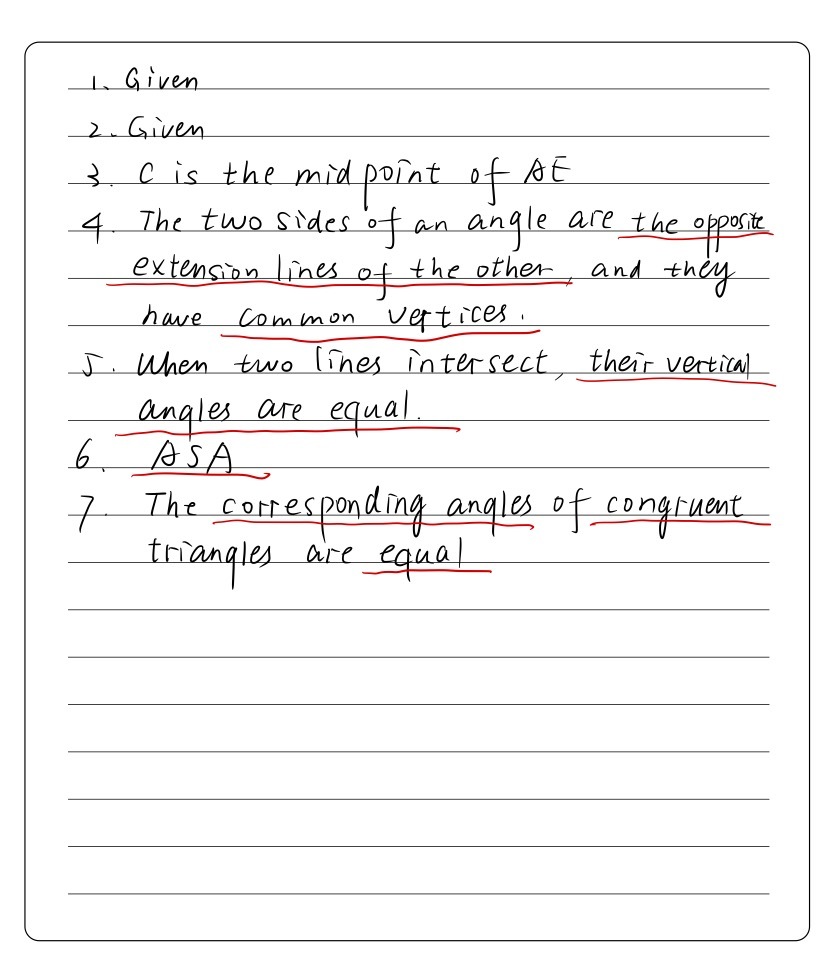 1. Given
2. Given
3. C is the midpoint of AE
4. The two sides of an angle are the opposite
extension lines of the other, and they
have common vertices.
5. When two lines intersect, their vertical
angles are equal.
6. ASA
7. The corresponding angles of congruent
triangles are equal